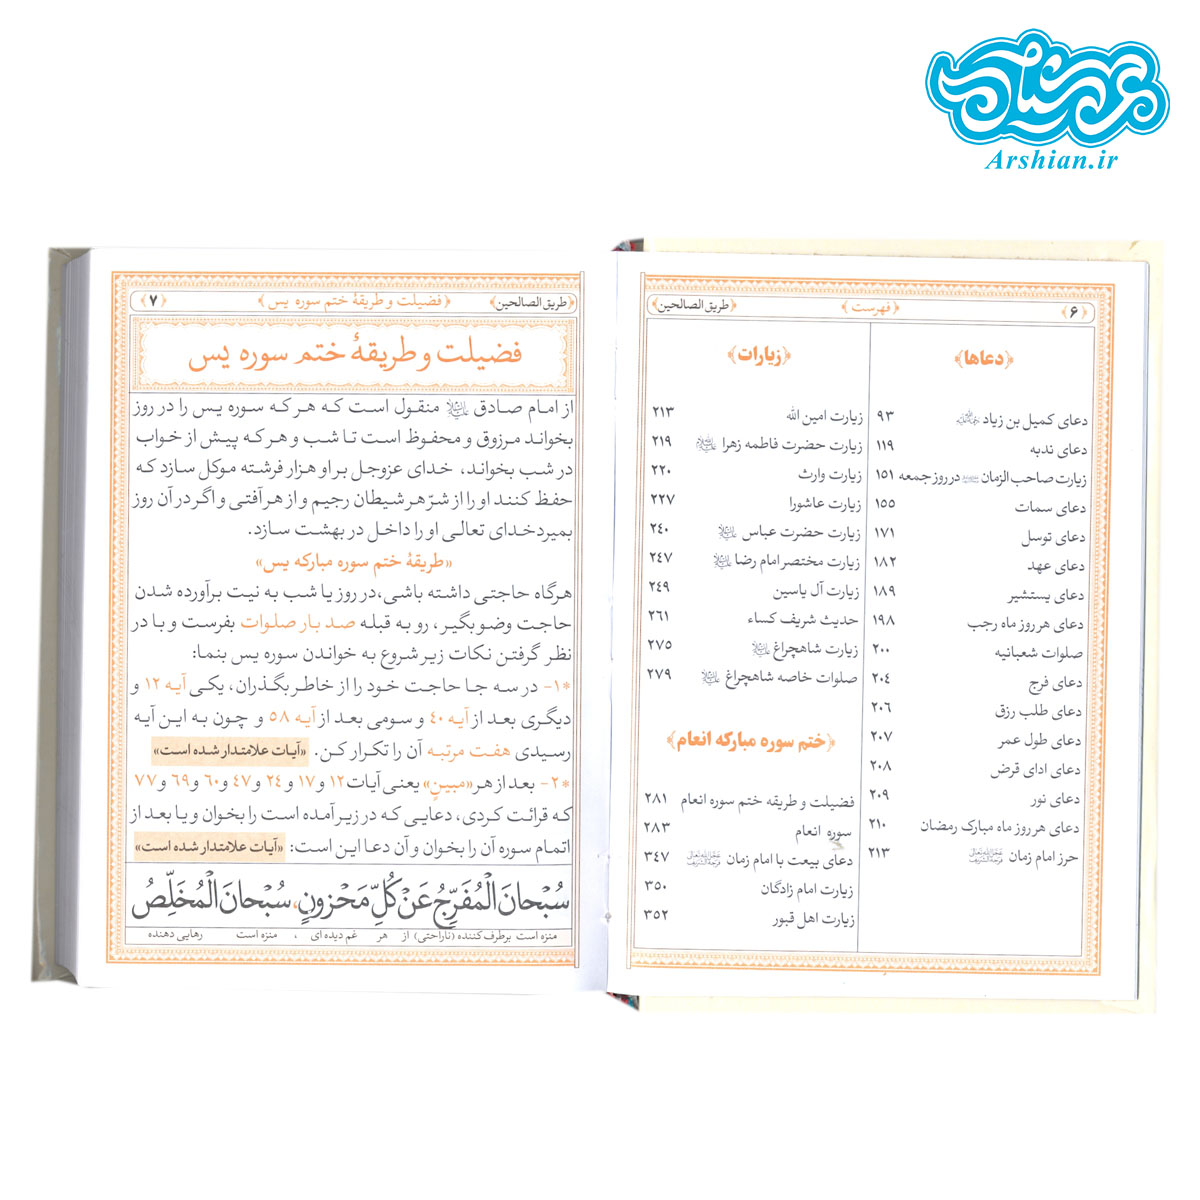 عرشیان
Arshian.ir
﴿۶﴾
﴿فهرست﴾
﴿طریق الصالحین﴾
﴿دعاها﴾
دعای کمیل بن زیاد ۹۳
دعای ندبه ۱۱۹
زیارت صاحب الزمان در روز جمعه ۱۵۱
دعای سمات ۱۵۵
دعای توسل ۱۷۱
دعای عهد ۱۸۲
دعای یستشیر ۱۸۹
دعای هر روز ماه رجب ۱۹۸
صلوات شعبانیه ۲۰۰
دعای فرج ۲۰۴
دعای طلب رزق ۲۰۶
دعای طول عمر ۲۰۷
دعای ادای قرض ۲۰۸
دعای نور ۲۰۹
دعای هر روز ماه مبارک رمضان ۲۱۰
حرز امام زمان ۲۱۳
﴿زیارات﴾
زیارت امین الله ۲۱۳
زیارت حضرت فاطمه زهرا ۲۱۹
زیارت وارث ۲۲۰
زیارت عاشورا ۲۲۷
زیارت حضرت عباس ۲۴۰
زیارت مختصر امام رضا ۲۴۷
زیارت آل یاسین ۲۴۹
حدیث شریف کساء ۲۶۱
زیارت شاهچراغ ۲۷۵
صلوات خاصه شاهچراغ ۲۷۹
﴿ختم سوره مبارکه انعام﴾
فضیلت و طریقه ختم سوره انعام ۲۸۱
سوره انعام ۲۸۳
دعای بیعت با امام زمان ۳۴۷
زیارت امام زادگان ۳۵۰
زیارت اهل قبور ۳۵۲
﴿طریق الصالحین﴾
﴿فضیلت و طریقهٔ ختم سوره یس﴾
﴿۷﴾
فضیلت و طریقهٔ ختم سوره یس
از امام صادق منقول است که هر که سوره یس را در روز
بخواند مرزوق و محفوظ است تا شب و هر که پیش از خواب
در شب بخواند، خدای عزوجل بر او هزار فرشته موکل سازد که
حفظ کنند او را از شرّ هر شیطان رجیم و از هر آفتی و اگر در آن روز
بمیرد خدای تعالی او را داخل در بهشت سازد.
«طریقهٔ ختم سوره مبارکه یس»
هرگاه حاجتی داشته باشی، در روز یا شب به نیت برآورده شدن
حاجت وضو بگیر، رو به قبله صد بار صلوات بفرست و با در
نظر گرفتن نکات زیر شروع به خواندن سوره یس بنما:
*۱- در سه جا حاجت خود را از خاطر بگذران، یکی آیه ۱۲ و
دیگری بعد از آیه ۴۰ و سومی بعد از آیه ۵۸ و چون به این آیه
رسیدی هفت مرتبه آن را تکرار کن. «آیات علامتدار شده است»
*۲- بعد از هر «مبینٍ» یعنی آیات ۱۲ و ۱۷ و ۲۴ و ۴۷ و ۶۰ و ۶۹ و ۷۷
که قرائت کردی، دعایی که در زیر آمده است را بخوان و یا بعد از
اتمام سوره آن را بخوان و آن دعا این است: «آیات علامتدار شده است»
سُبْحانَ الْمُفَرِّجُ عَنْ كُلِّ مَحْزونٍ، سُبْحانَ الْمُخَلِّصُ
منزه است برطرف کننده (ناراحتی) از هر غم دیده ای ، منزه است رهایی دهنده